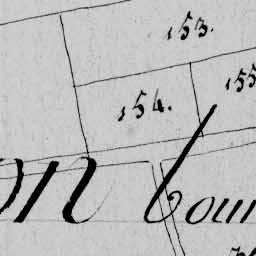 153.
155
154.
on bour